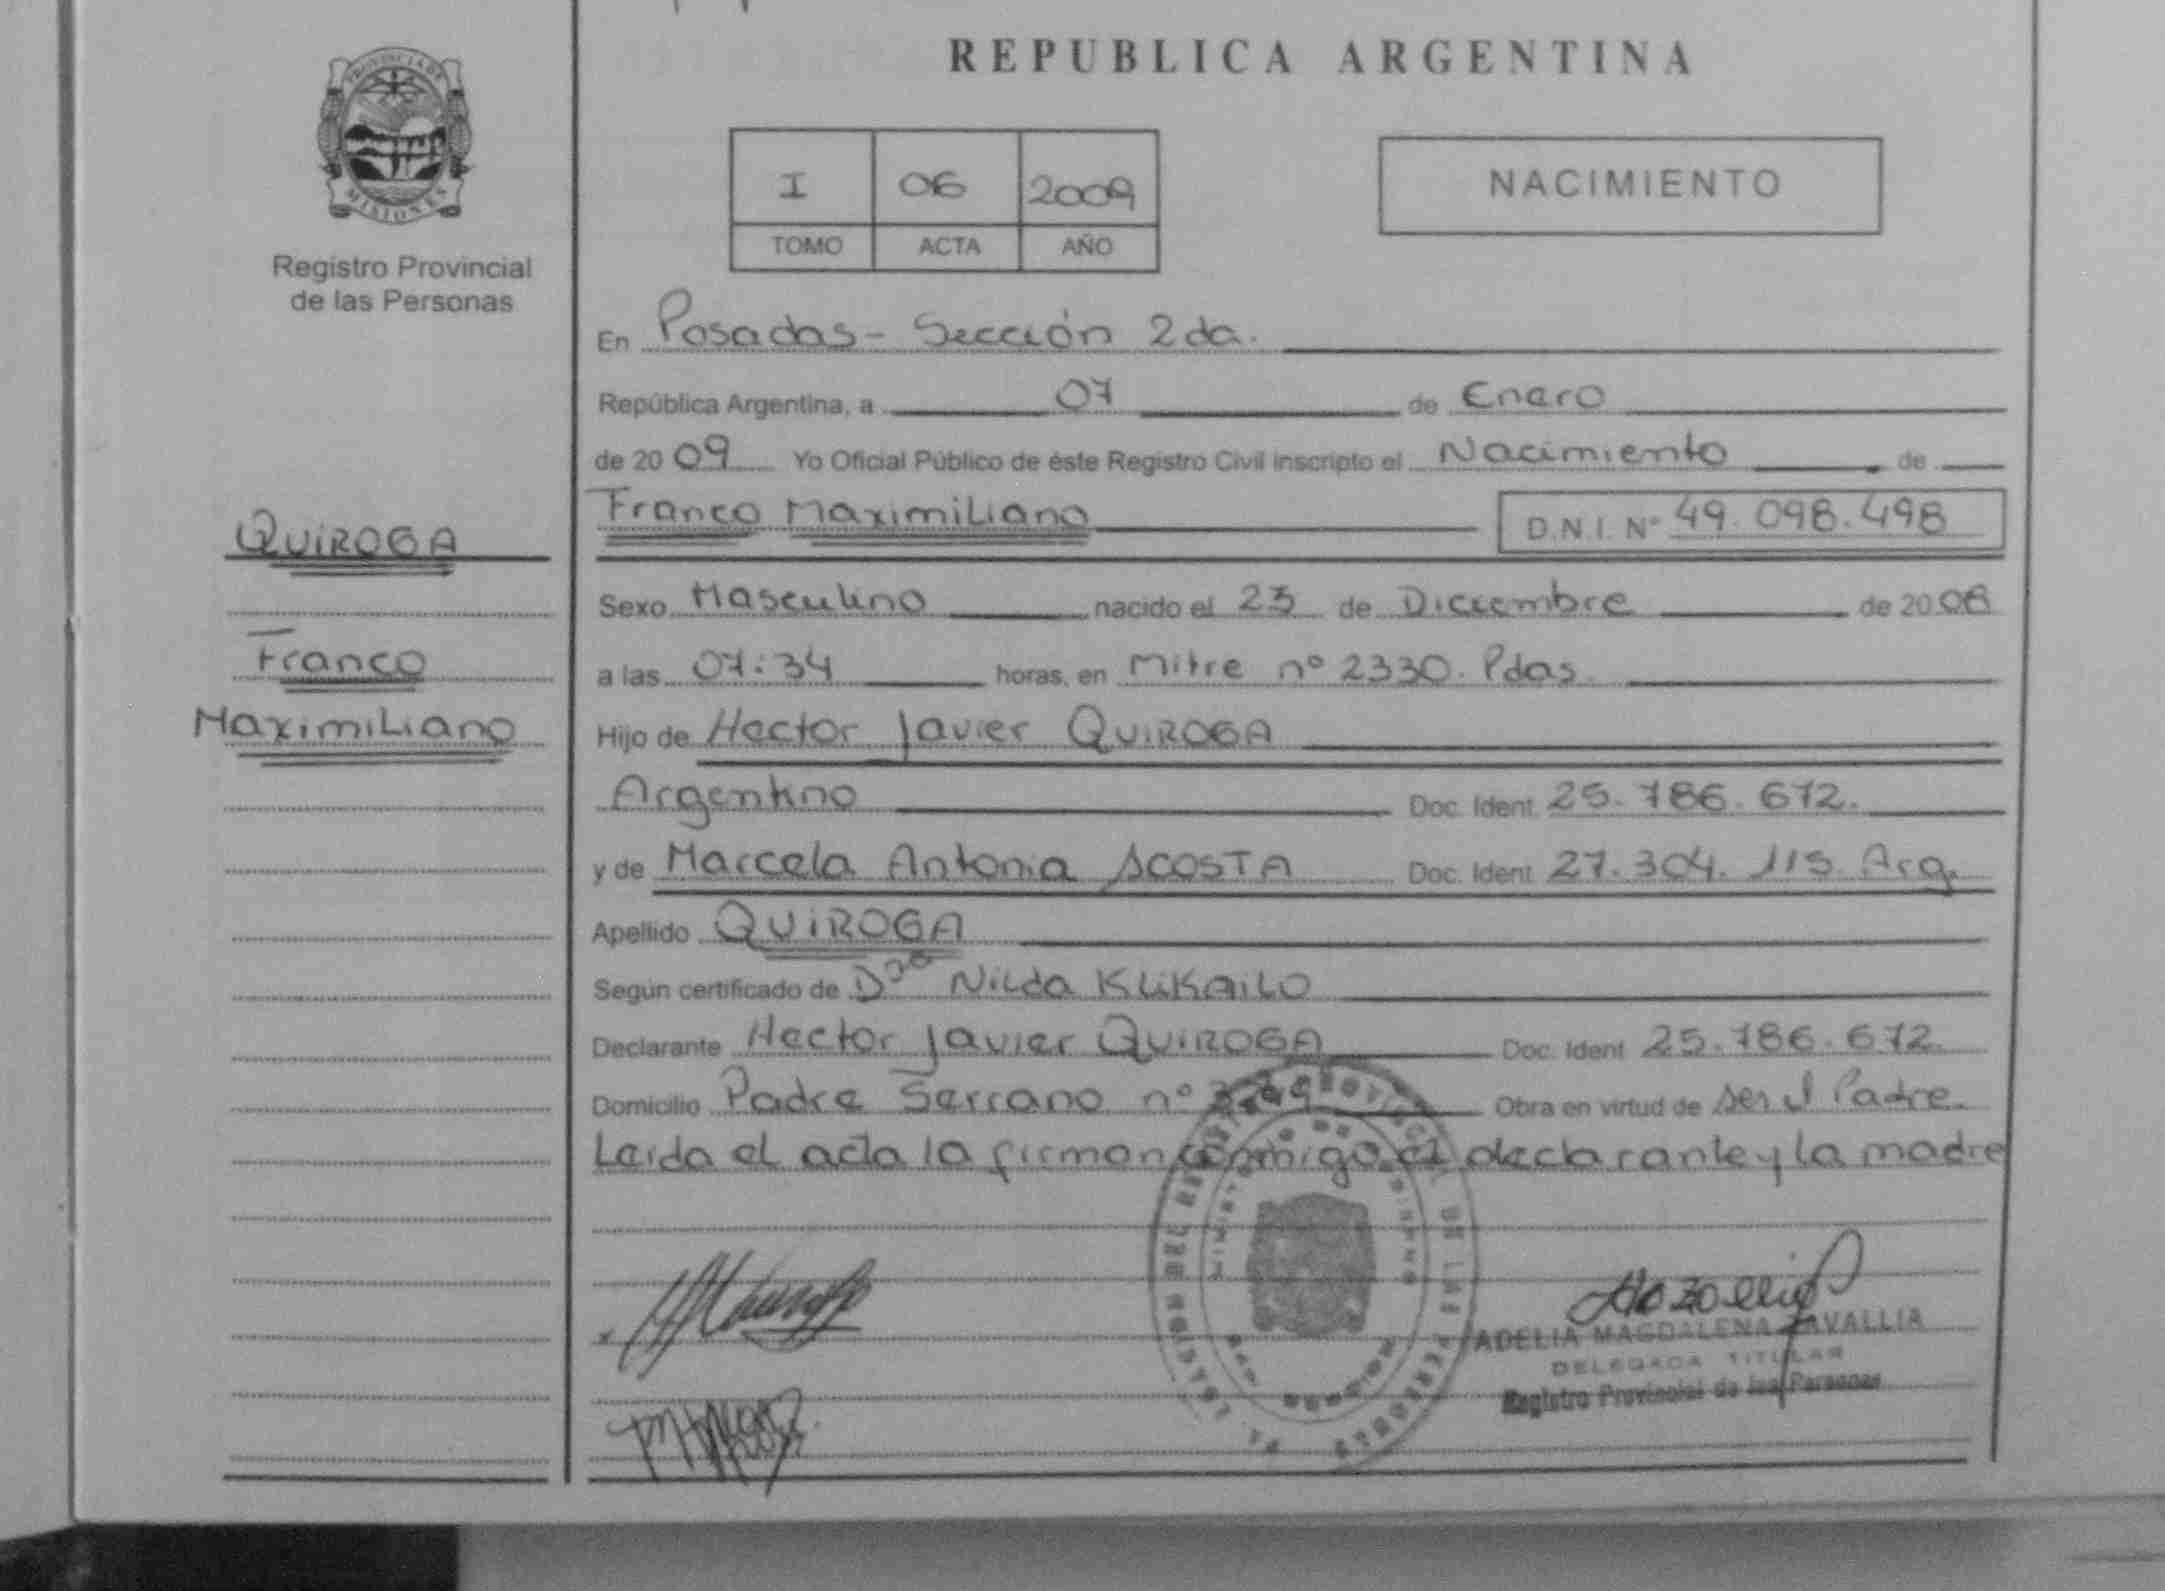 REPUBLICA ARGENTINA
PROVINCIA DE
MISIONES
Registro Provincial
de las Personas
I 06 2009
TOMO ACTA AÑO
NACIMIENTO
QUIROGA
Franco
Maximiliano
En Posadas - Sección 2da.
República Argentina, a 07 de Enero
de 2009 Yo Oficial Público de éste Registro Civil inscripto el Nacimiento de
Franco Maximiliano D.N.I. Nº 49.098.498
Sexo Masculino nacido el 23 de Diciembre de 2008
a las 07:34 horas, en Mitre nº 2330. Pdas.
Hijo de Hector Javier QUIROGA
Argentino Doc. Ident. 25.786.672.
y de Marcela Antonia ACOSTA Doc. Ident. 27.304.115. Arg.
Apellido QUIROGA
Según certificado de Dra Nilda KLIKAILO
Declarante Hector Javier QUIROGA Doc. Ident 25.786.672.
Domicilio Padre Serrano nº Obra en virtud de ser el Padre.
Leida el acta la firman conmigo el declarante y la madre
ADELIA MAGDALENA ZAVALLIA
DELEGADA TITULAR
Registro Provincial de las Personas